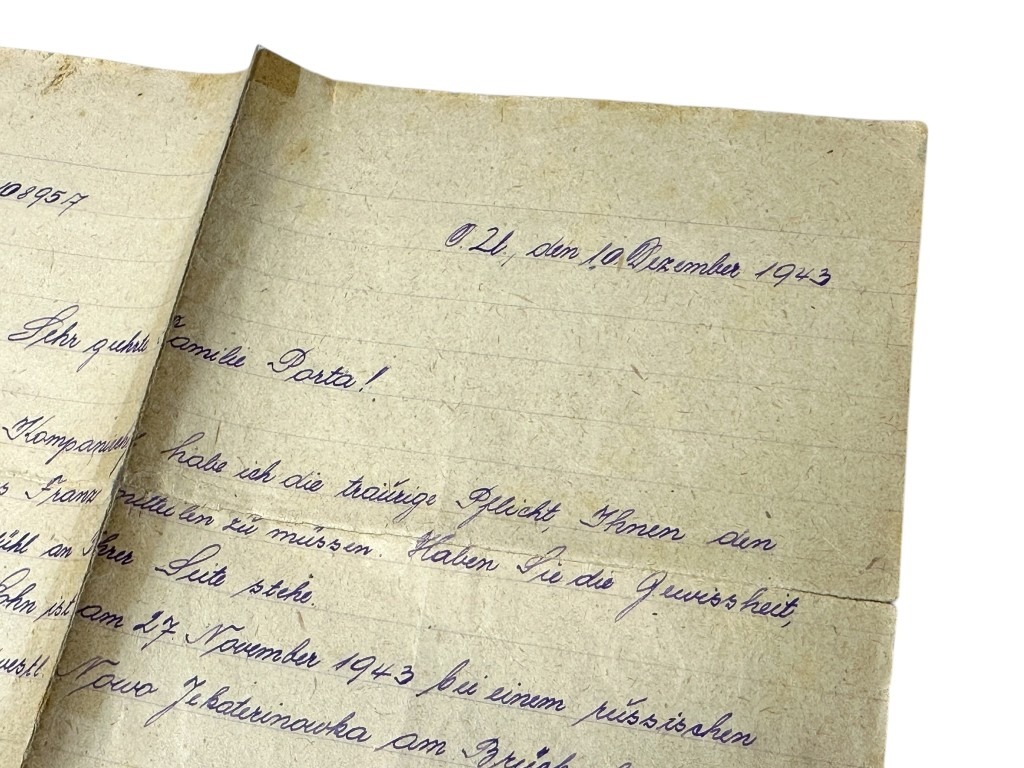 108957
O. U., den 10. Dezember 1943
Sehr geehrte Familie Porta!
habe ich die traurige Pflicht, Ihnen den
Franz mitteilen zu müssen. Haben Sie die Gewissheit,
an Ihrer Seite stehe.
Sohn ist am 27. November 1943 bei einem russischen
westl. Nowo Jekaterinowka am